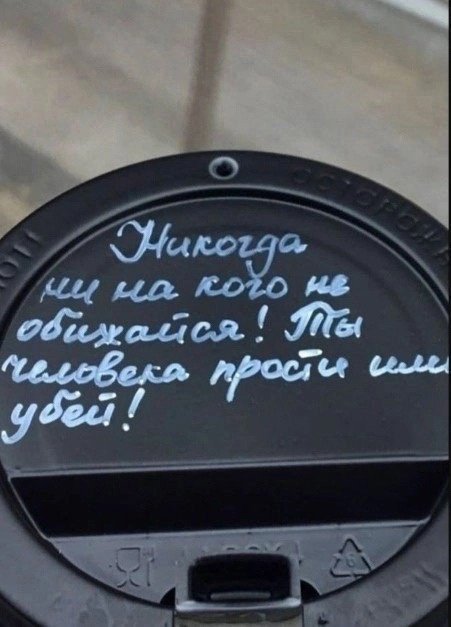 Никогда
ни на кого не
обижайся! Ты
человека прости или
убей!
ОСТОРОЖН